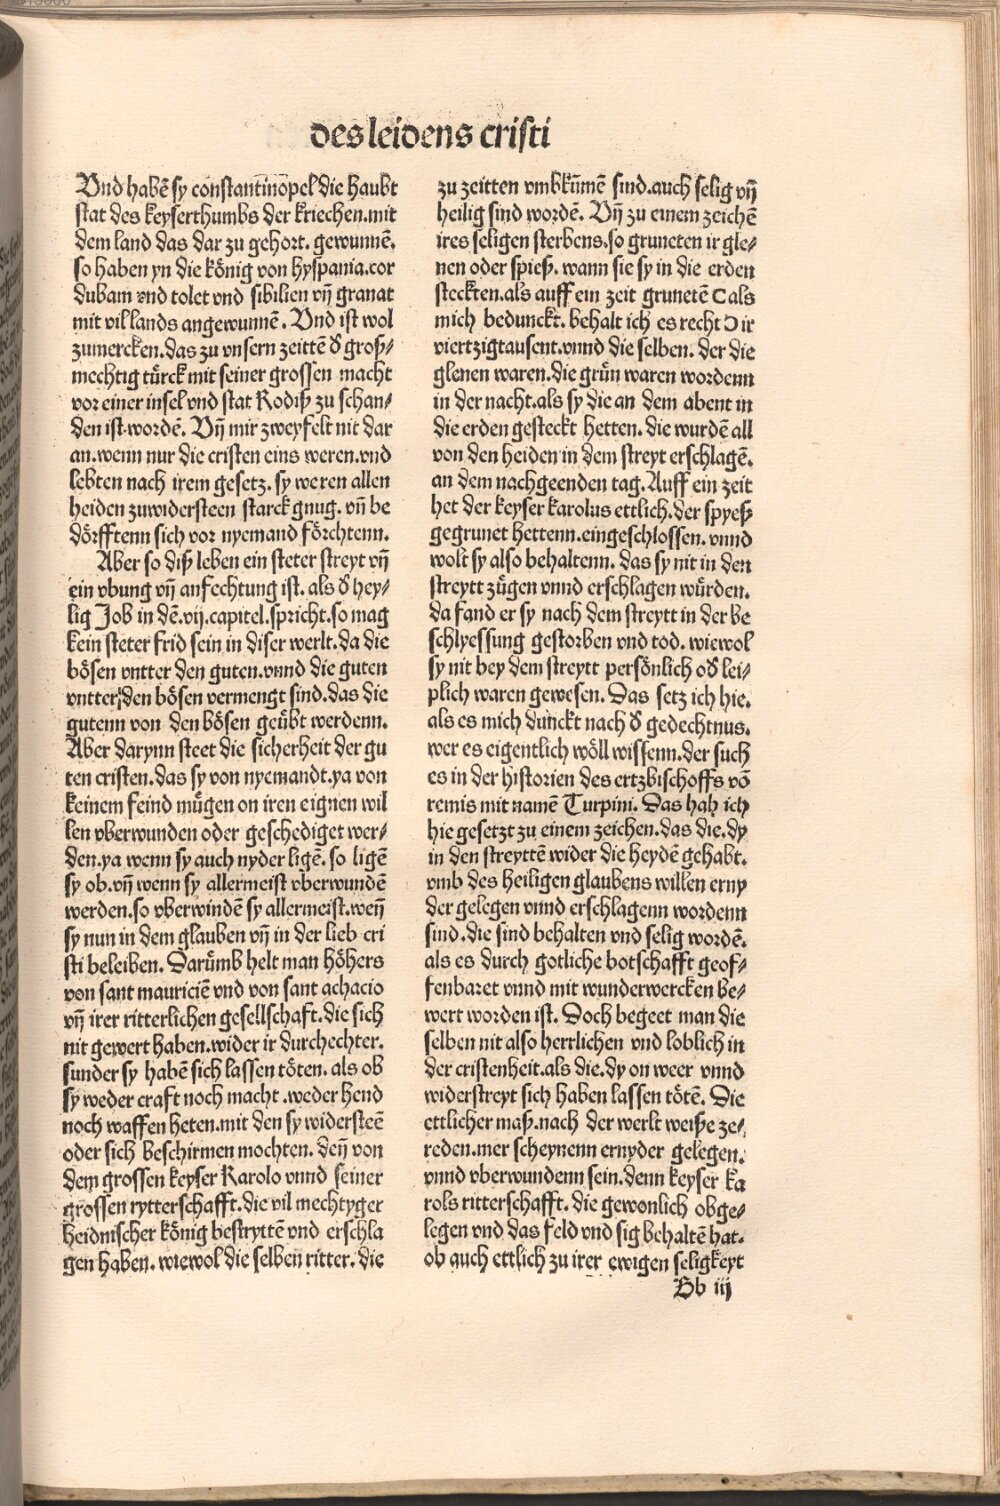 des leidens cristi
Vnd habē sy constantinopel die haubt
stat des keyserthumbs der kriechen.mit
dem land das dar zu gehort. gewunnē.
so haben yn die könig von hyspania.cor
dubam vnd tolet vnd sibilien vñ granat
mit vil lands angewunnē. Vnd ist wol
zumercken.das zu vnsern zeittē ď groß⸗
mechtig türck mit seiner grossen macht
vor einer insel vnd stat Rodiß zu schan⸗
den ist wordē. Vñ mir zweyfelt nit dar
an.wenn nur die cristen eins weren.vnd
lebten nach irem gesetz. sy weren allen
heiden zuwidersteen starck gnug. vñ be
dörfftenn sich vor nyemand förchtenn.
Aber so diß leben ein steter streyt vñ
ein vbung vñ anfechtung ist. als ď hey⸗
lig Job in dē.vij.capitel.spricht.so mag
kein steter frid sein in diser werlt.da die
bösen vntter den guten.vnnd die guten
vntter den bösen vermengt sind.das die
gutenn von den bösen geübt werdenn.
Aber darynn steet die sicherheit der gu
ten cristen.das sy von nyemandt.ya von
keinem feind mügen on iren eignen wil
len vberwunden oder geschediget wer⸗
den.ya wenn sy auch nyder ligē. so ligē
sy ob.vñ wenn sy allermeist vberwundē
werden.so vberwindē sy allermeist.weñ
sy nun in dem glauben vñ in der lieb cri
sti beleiben. Darümb helt man höhers
von sant mauriciē vnd von sant achacio
vñ irer ritterlichen gesellschaft.die sich
nit gewert haben.wider ir durchechter.
sunder sy habē sich lassen töten. als ob
sy weder craft noch macht.weder hend
noch waffen heten.mit den sy widersteē
oder sich beschirmen mochten. deñ von
dem grossen keyser Karolo vnnd seiner
grossen rytterschafft.die vil mechtyger
heidnischer könig bestryttē vnd erschla
gen haben. wiewol die selben ritter. die
zu zeitten vmbkūmē sind.auch selig vñ
heilig sind wordē. Vñ zu einem zeichē
ires seligen sterbens.so gruneten ir gle⸗
nen oder spieß. wann sie sy in die erden
steckten.als auff ein zeit grunetē C als
mich bedunckt. behalt ich es recht Ɔ ir
viertzigtausent.vnnd die selben. der die
glenen waren.die grün waren wordenn
in der nacht.als sy die an dem abent in
die erden gesteckt hetten. die wurdē all
von den heiden in dem streyt erschlagē.
an dem nachgeenden tag. Auff ein zeit
het der keyser karolus ettlich.der spyeß
gegrunet hettenn.eingeschlossen. vnnd
wolt sy also behaltenn. das sy nit in den
streytt zügen vnnd erschlagen würden.
da fand er sy nach dem streytt in der be
schlyessung gestorben vnd tod. wiewol
sy nit bey dem streytt persönlich oď lei⸗
plich waren gewesen. Das setz ich hie.
als es mich dunckt nach ď gedechtnus.
wer es eigentlich wöll wissenn.der such
es in der historien des ertzbischoffs vō
remis mit namē Turpini. Das hab ich
hie gesetzt zu einem zeichen.das die.dy
in den streyttē wider die heydē gehabt.
vmb des heiligen glaubens willen erny
der gelegen vnnd erschlagenn wordenn
sind.die sind behalten vnd selig wordē.
als es durch gotliche botschafft geof⸗
fenbaret vnnd mit wunderwercken be⸗
wert worden ist. Doch begeet man die
selben nit also herrlichen vnd loblich in
der cristenheit.als die.dy on weer vnnd
widerstreyt sich haben lassen tötē. Die
ettlicher maß.nach der werlt weiße ze⸗
reden.mer scheynenn ernyder gelegen.
vnnd vberwundenn sein.denn keyser ka
rols ritterschafft. die gewonlich obge⸗
legen vnd das feld vnd sig behaltē hat.
ob auch ettlich zu irer ewigen seligkeyt
Bb iij